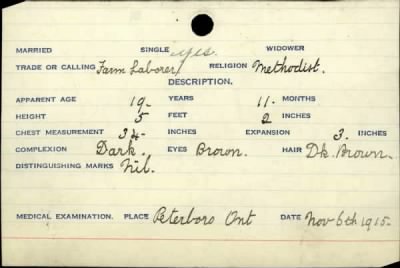 MARRIED SINGLE yes. WIDOWER
TRADE OR CALLING Farm Laborer RELIGION Methodist.
DESCRIPTION.
APPARENT AGE 19- YEARS 11- MONTHS
HEIGHT 5 FEET 2 INCHES
CHEST MEASUREMENT 34- INCHES EXPANSION 3. INCHES
COMPLEXION Dark. EYES Brown. HAIR Dk. Brown.
DISTINGUISHING MARKS Nil.
MEDICAL EXAMINATION. PLACE Peterboro Ont DATE Nov 6th 1915-